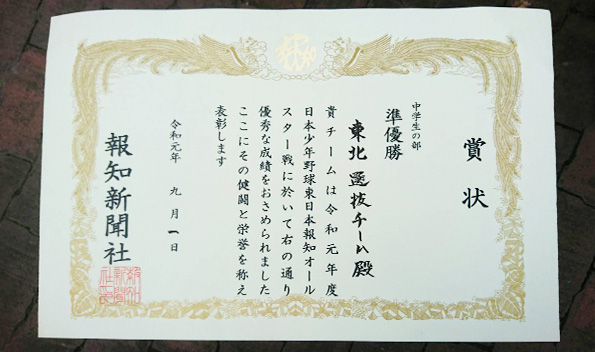 賞状
中学生の部
準優勝
東北選抜チーム殿
貴チームは令和元年度
日本少年野球東日本報知オール
スター戦に於いて右の通り
優秀な成績をおさめられました
ここにその健闘と栄誉を称え
表彰します
令和元年 九月一日
報知新聞社